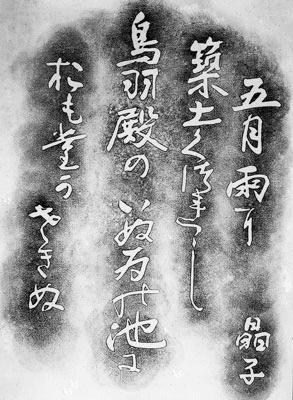 五月雨に
築土くづれし
鳥羽殿のいぬゐの池に
おもだかさきぬ
晶子